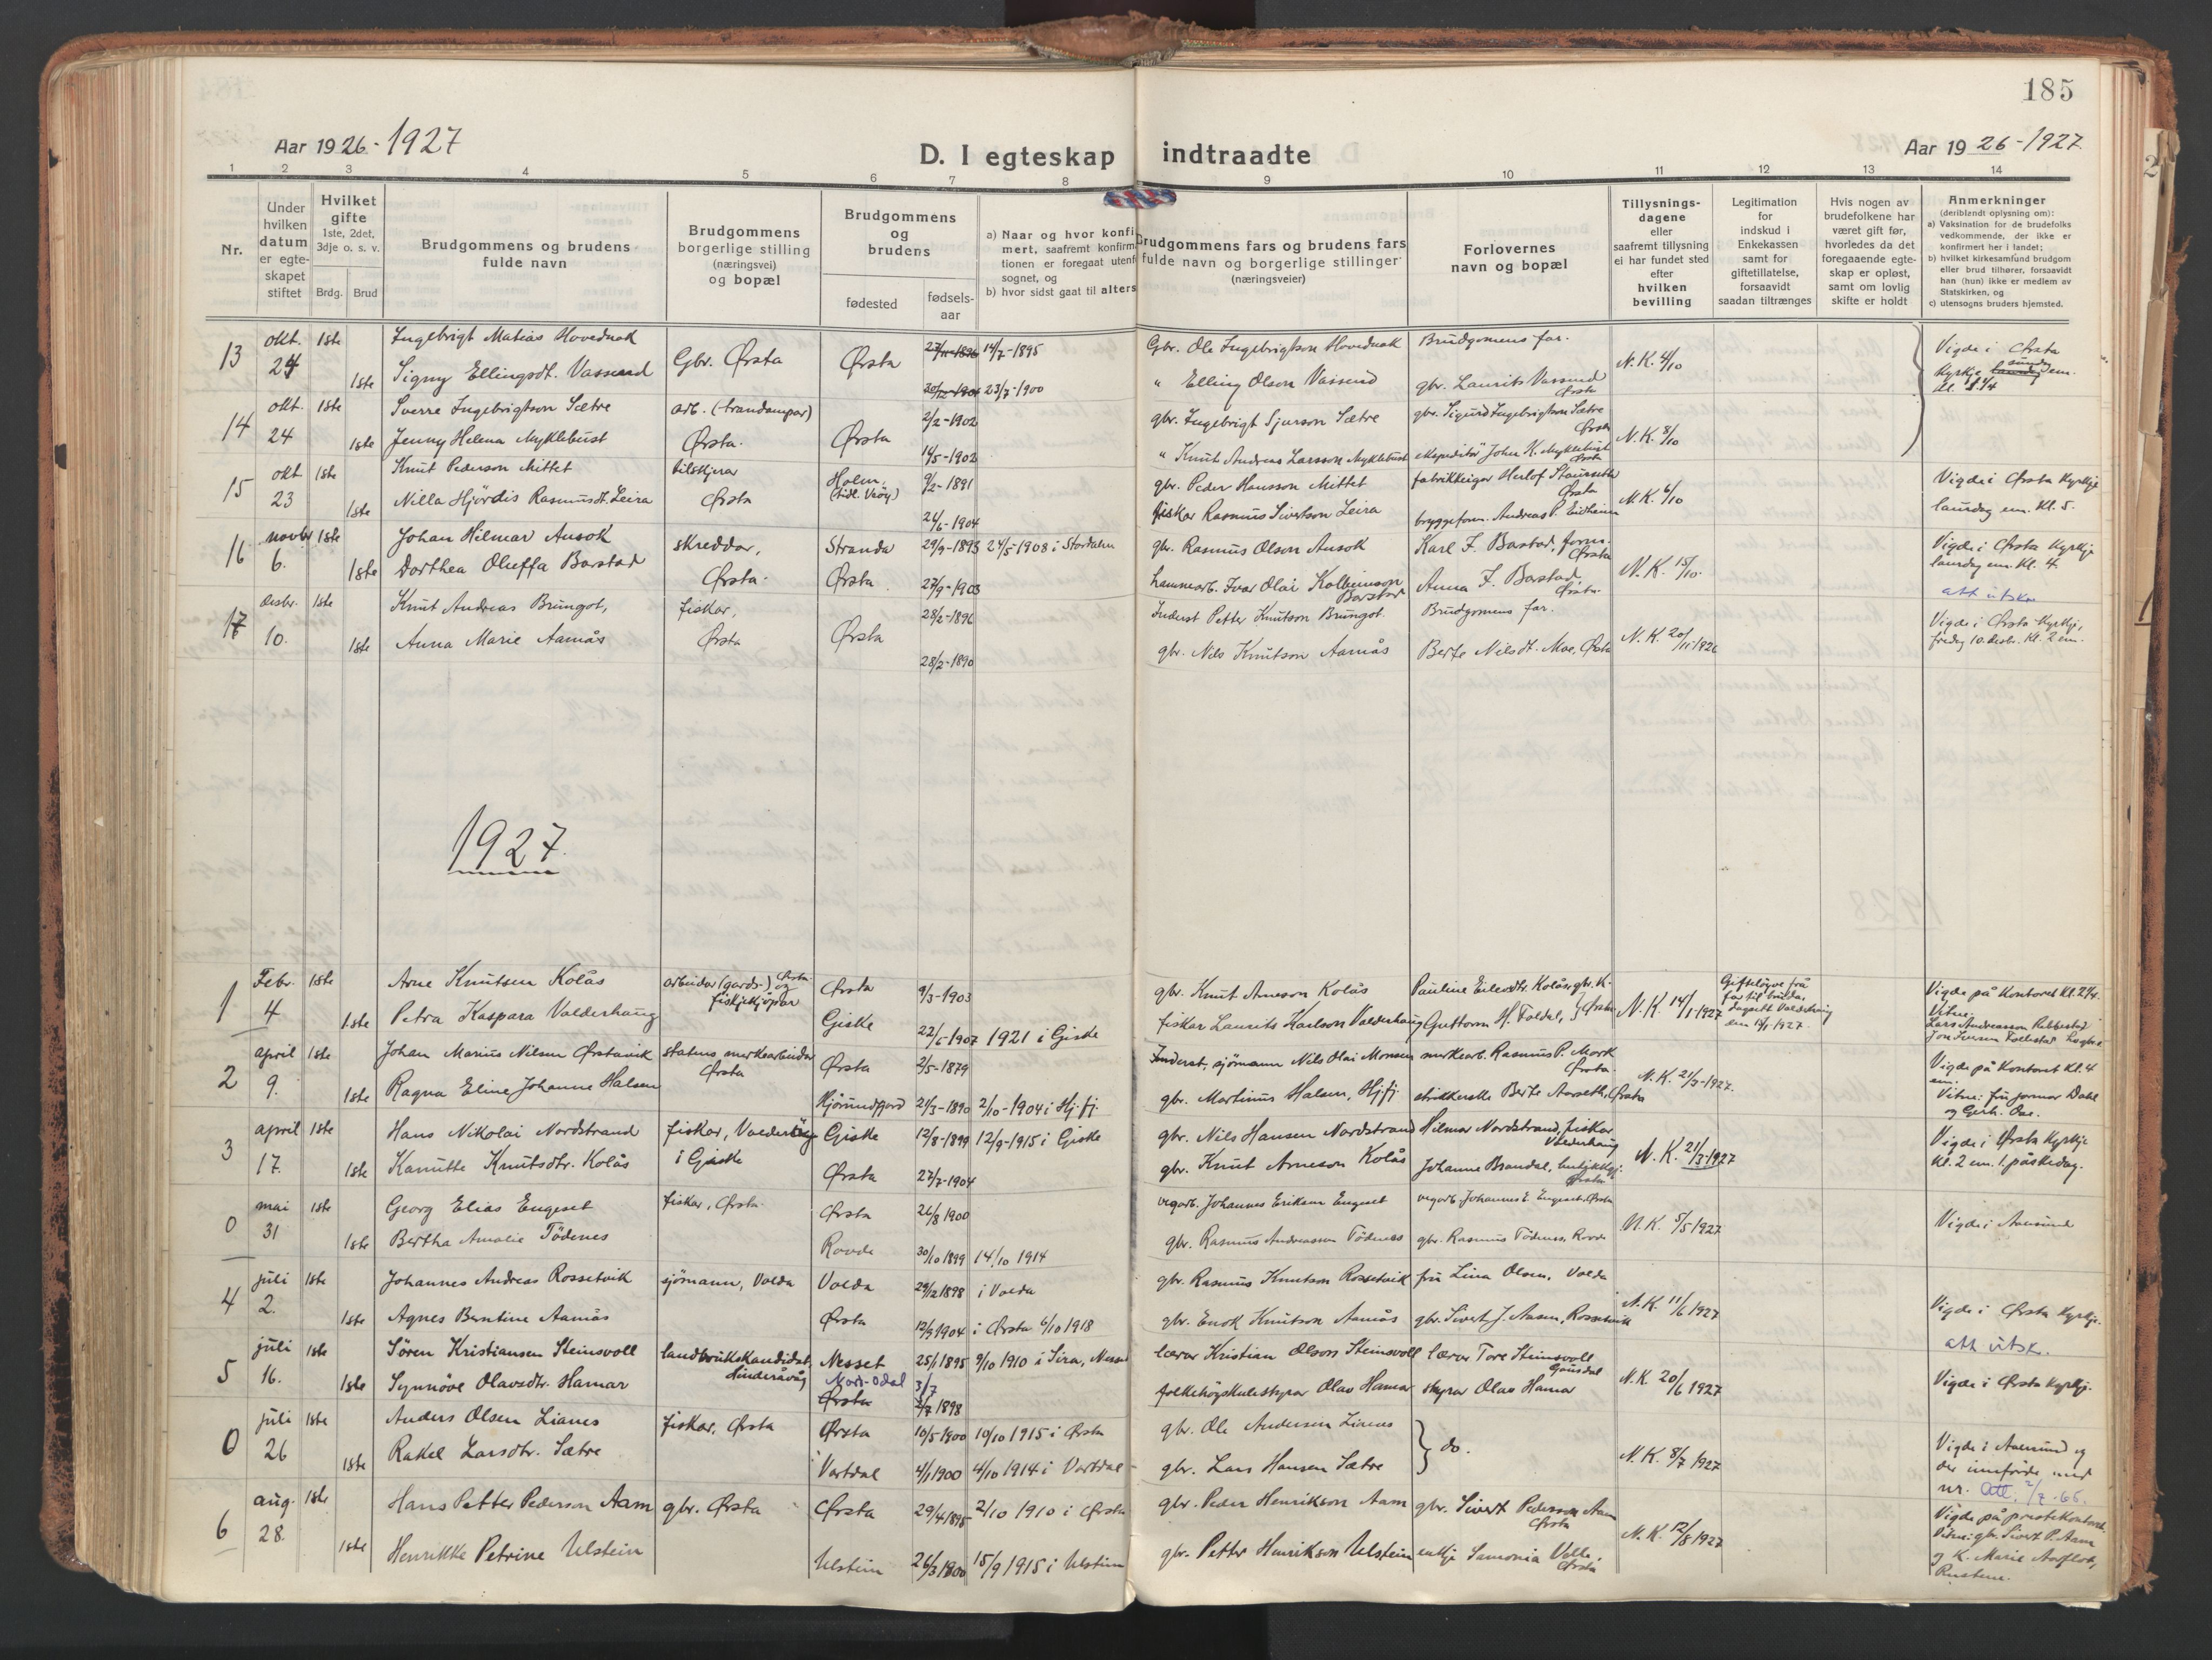 185
Aar 1926-1927
D. I egteskap indtraadte
Aar 1926-1927
1 2 3 4 5 6 7 8 9 10 11 12 13 14
Nr.
Under hvilken datum er egteskapet stiftet
Hvilket gifte 1ste, 2det, 3dje o. s. v.
Brdg. Brud
Brudgommens og brudens fulde navn
Brudgommens borgerlige stilling (næringsvei) og bopæl
Brudgommens og brudens
fødested
fødsels-aar
a) Naar og hvor konfi
mert, saafremt konfirm
tionen er foregaat utenf
sognet, og
b) hvor sidst gaat til alters
Brudgommens fars og brudens fars fulde navn og borgerlige stillinger (næringsveier)
Forlovernes navn og bopæl
Tillysningsdagene eller saafremt tillysning ei har fundet sted efter hvilken bevilling
Legitimation for indskud i Enkekassen samt for giftetillatelse, forsaavidt saadan tiltrænges
Hvis nogen av brudefolkene har været gift før, hvorledes da det foregaaende egteskap er opløst, samt om lovlig skifte er holdt
Anmerkninger
(deriblandt oplysning om):
a) Vaksination for de brudefolks vedkommende, der ikke er konfirmert her i landet;
b) hvilket kirkesamfund brudgom eller brud tilhører, forsaavidt han (hun) ikke er medlem av Statskirken, og
c) utensogns bruders hjemsted.
13 okt. 24 1ste Ingebrigt Matias Hovednak Gbr. Ørsta Ørsta 14/7-1895 Gbr. Ole Ingebrigtson Hovednak Brudgomens far. N.K. 4/10 Vigde i Ørsta Kyrkje
1ste Signy Ellingsdt. Vassend 23/7-1900 " Elling Olson Vassend gbr. Laurits Vassend Ørsta
14 okt. 24 1ste Sverre Ingebrigtson Sætre arb. Ørsta. Ørsta 2/2-1902 gbr. Ingebrigt Sjurson Sætre gbr. Sigurd Ingebrigtson Sætre Ørsta N.K. 8/10
1ste Jenny Helena Myklebust 14/5-1902 " Knut Andreas Larsson Myklebust ekspeditør Johen K. Myklebust Ørsta
15 okt 23 1ste Knut Pederson Mittet bilskjerar Ørsta Holm, 9/2-1891 gbr. Peder Hansson Mittet fabrikkeigar Herlof Staurseth Ørsta N.K. 6/10 Vigde i Ørsta Kyrkje
1ste Nilla Hjördis Rasmusdt. Leira 26/6-1904 fiskar Rasmus Sivertson Leira bryggeform. Andreas P. Eidheim laurdag em. Kl. 5.
16 novbr 6. 1ste Johan Hilmar Ansok skreddar, Ørsta. Stranda 29/9-1893 24/5-1908 i Stordalen gbr. Rasmus Olson Ansok Karl I. Barstad, form. Ørsta N.K. 15/10. Vigde i Ørsta Kyrkje
1ste Dorthea Oluffa Barstad Ørsta 27/9-1903 Ivar Olai Kolbeinson Barstad Anna I. Barstad, Ørsta. laurdag em. Kl. 4.
att utskr
17 desbr. 10. 1ste Knut Andreas Brungot, fiskar, Ørsta Ørsta 28/2-1896 Inderst Petter Knutson Brungot Brudgomens far. N.K. 20/11 1926 Vigde i Ørsta Kyrkje,
1ste Anna Marie Aamås 28/2-1890 gbr. Nils Knutson Aamås Berte Nilsdt. Moe, Ørsta fredag 10. desbr. Kl. 2 em.
1927.
1 Febr. 4 1ste Arne Knutsen Kolås arbeidar (gards-) og fiskjekjöpar Ørsta Ørsta 9/3-1903 gbr. Knut Arneson Kolås Pauline Eilevdtr. Kolås, gbr. K. N.K. 14/1-1927 Giftelöyve frå far til bruda, Vigde på Kontoret Kl. 2 1/4.
1ste Petra Kaspara Valderhaug Giske 22/5-1907 1921 i Giske fiskar Laurits Karlson Valderhaug Guttorm H. Foldal, Ørsta Vitne:
2 april 9. 1ste Johan Marius Nilsen Ørstavik statens merkearbeidar Ørsta Ørsta 2/5-1879 Inderst, sjömann Nils Olai Monsen merkearb. Rasmus P. Mork Ørsta. N.K. 21/3-1927. Vigde på Kontoret Kl. 4 em.
1ste Ragna Eline Johanne Halsen Hjørundfjord 21/3-1890 2/10-1904 i Hj.fj. gbr. Martinus Halsen, Hj.fj. strikkerske Berte Aarseth, Ørsta Vitne: fru jormor Dahl
3 april 17. 1ste Hans Nikolai Nordstrand fiskar, Valderhaug i Giske Giske 12/8-1899 12/9-1915 i Giske gbr. Nils Hansen Nordstrand Hilmar Nordstrand, fiskar Valderhaug N.K. 21/3-1927 Vigde i Ørsta Kyrkje
1ste Kanutte Knutsdtr. Kolås Ørsta 27/7-1904 gbr. Knut Arneson Kolås Johanne Brandal, Ørsta Kl. 2 em. 1. påskedag.
0 mai 31 1ste Georg Elias Engeset fiskar, Ørsta Ørsta 26/8 1900 vegarb. Johannes Eriksen Engeset vegarb. Johannes E. Engeset, Ørsta N.K. 5/5 1927 Vigde i Aalesund
1ste Bertha Amalie Tödenes Rovde 30/10 1899 14/10 1914 gbr. Rasmus Andreassen Tödenes gbr. Rasmus Tödenes, Rovde
4 juli 2. 1ste Johannes Andreas Rossetvik sjömann, Volda Volda 29/12 1898 i Volda gbr. Rasmus Knutson Rossetvik fru Lina Olsen, Volda N.K. 11/6 1927 Vigde i Ørsta Kyrkje.
1ste Agnes Berntine Aamås Ørsta 12/9 1904 i Ørsta 6/10 1918 gbr. Enok Knutson Aamås gbr. Sivert J. Aasen, Rossetvik
att utsk.
5 juli 16. 1ste Sören Kristiansen Steinsvoll landbrukskandidat, Hinderåvåg Nesset 25/1 1895 9/10 1910 i Sira, Nesset lærar Kristian Olson Steinsvoll lærar Tore Steinsvoll Gausdal N.K. 20/6 1927 Vigde i Ørsta Kyrkj.
1ste Synnöve Olavsdtr. Hamar Nord-Odal Ørsta 3/7 1898 folkehögskulestyrar Olav Hamar styrar Olav Hamar
0 juli 26 1ste Anders Olsen Lianes fiskar, Ørsta Ørsta 10/5 1900 10/10 1915 i Ørsta gbr. Ole Andersen Lianes do. N.K. 8/7 1927 Vigde i Aalesund og
1ste Rakel Larsdtr. Sætre Vartdal 4/1 1900 4/10 1914 i Vartdal gbr. Lars Hansen Sætre der innförde med nr. Att. 2/7-65.
6 aug. 28. 1ste Hans Petter Pederson Aam gbr. Ørsta Ørsta 29/4 1895 2/10 1910 i Ørsta gbr. Peder Henrikson Aam gbr. Sivert Pederson Aam Ørsta N.K. 12/8 1927 Vigde på prestekontoret.
1ste Henrikke Petrine Ulstein Ulstein 26/3 1800 15/9 1915 i Ulstein gbr. Petter Henrikson Ulstein enkje Samonia Velle, Ørsta Vitne: gbr. Sivert P. Aam
og K. Marie Aaflot,